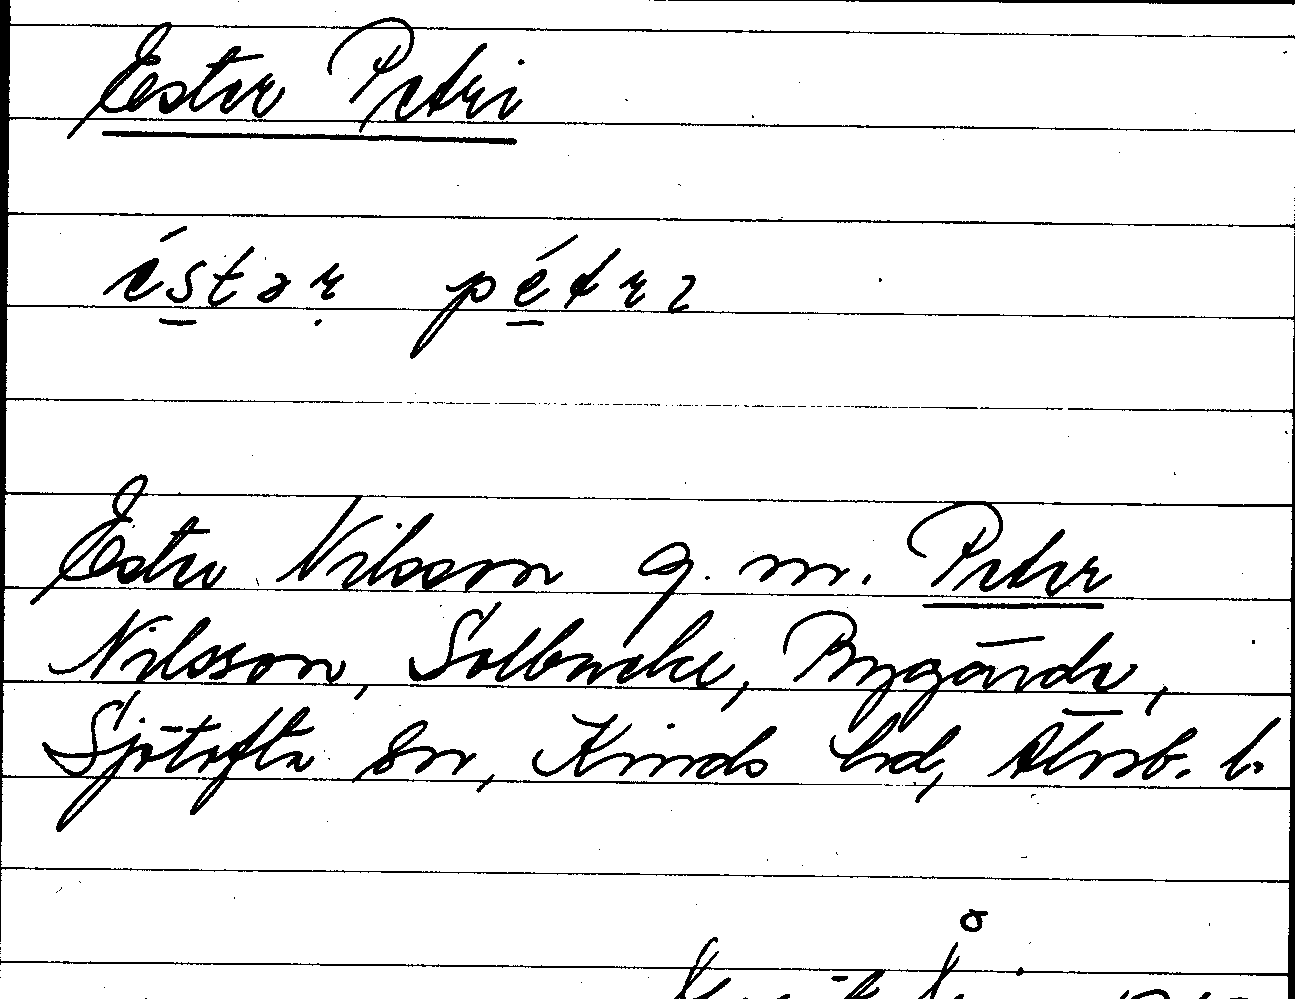 Ester Petri
éstər pétrɩ
Ester Nilsson g. m. Peter
Nilsson, Solbacke, Bygärde,
Sjötofta sn, Kinds hd, Älvsb. l.